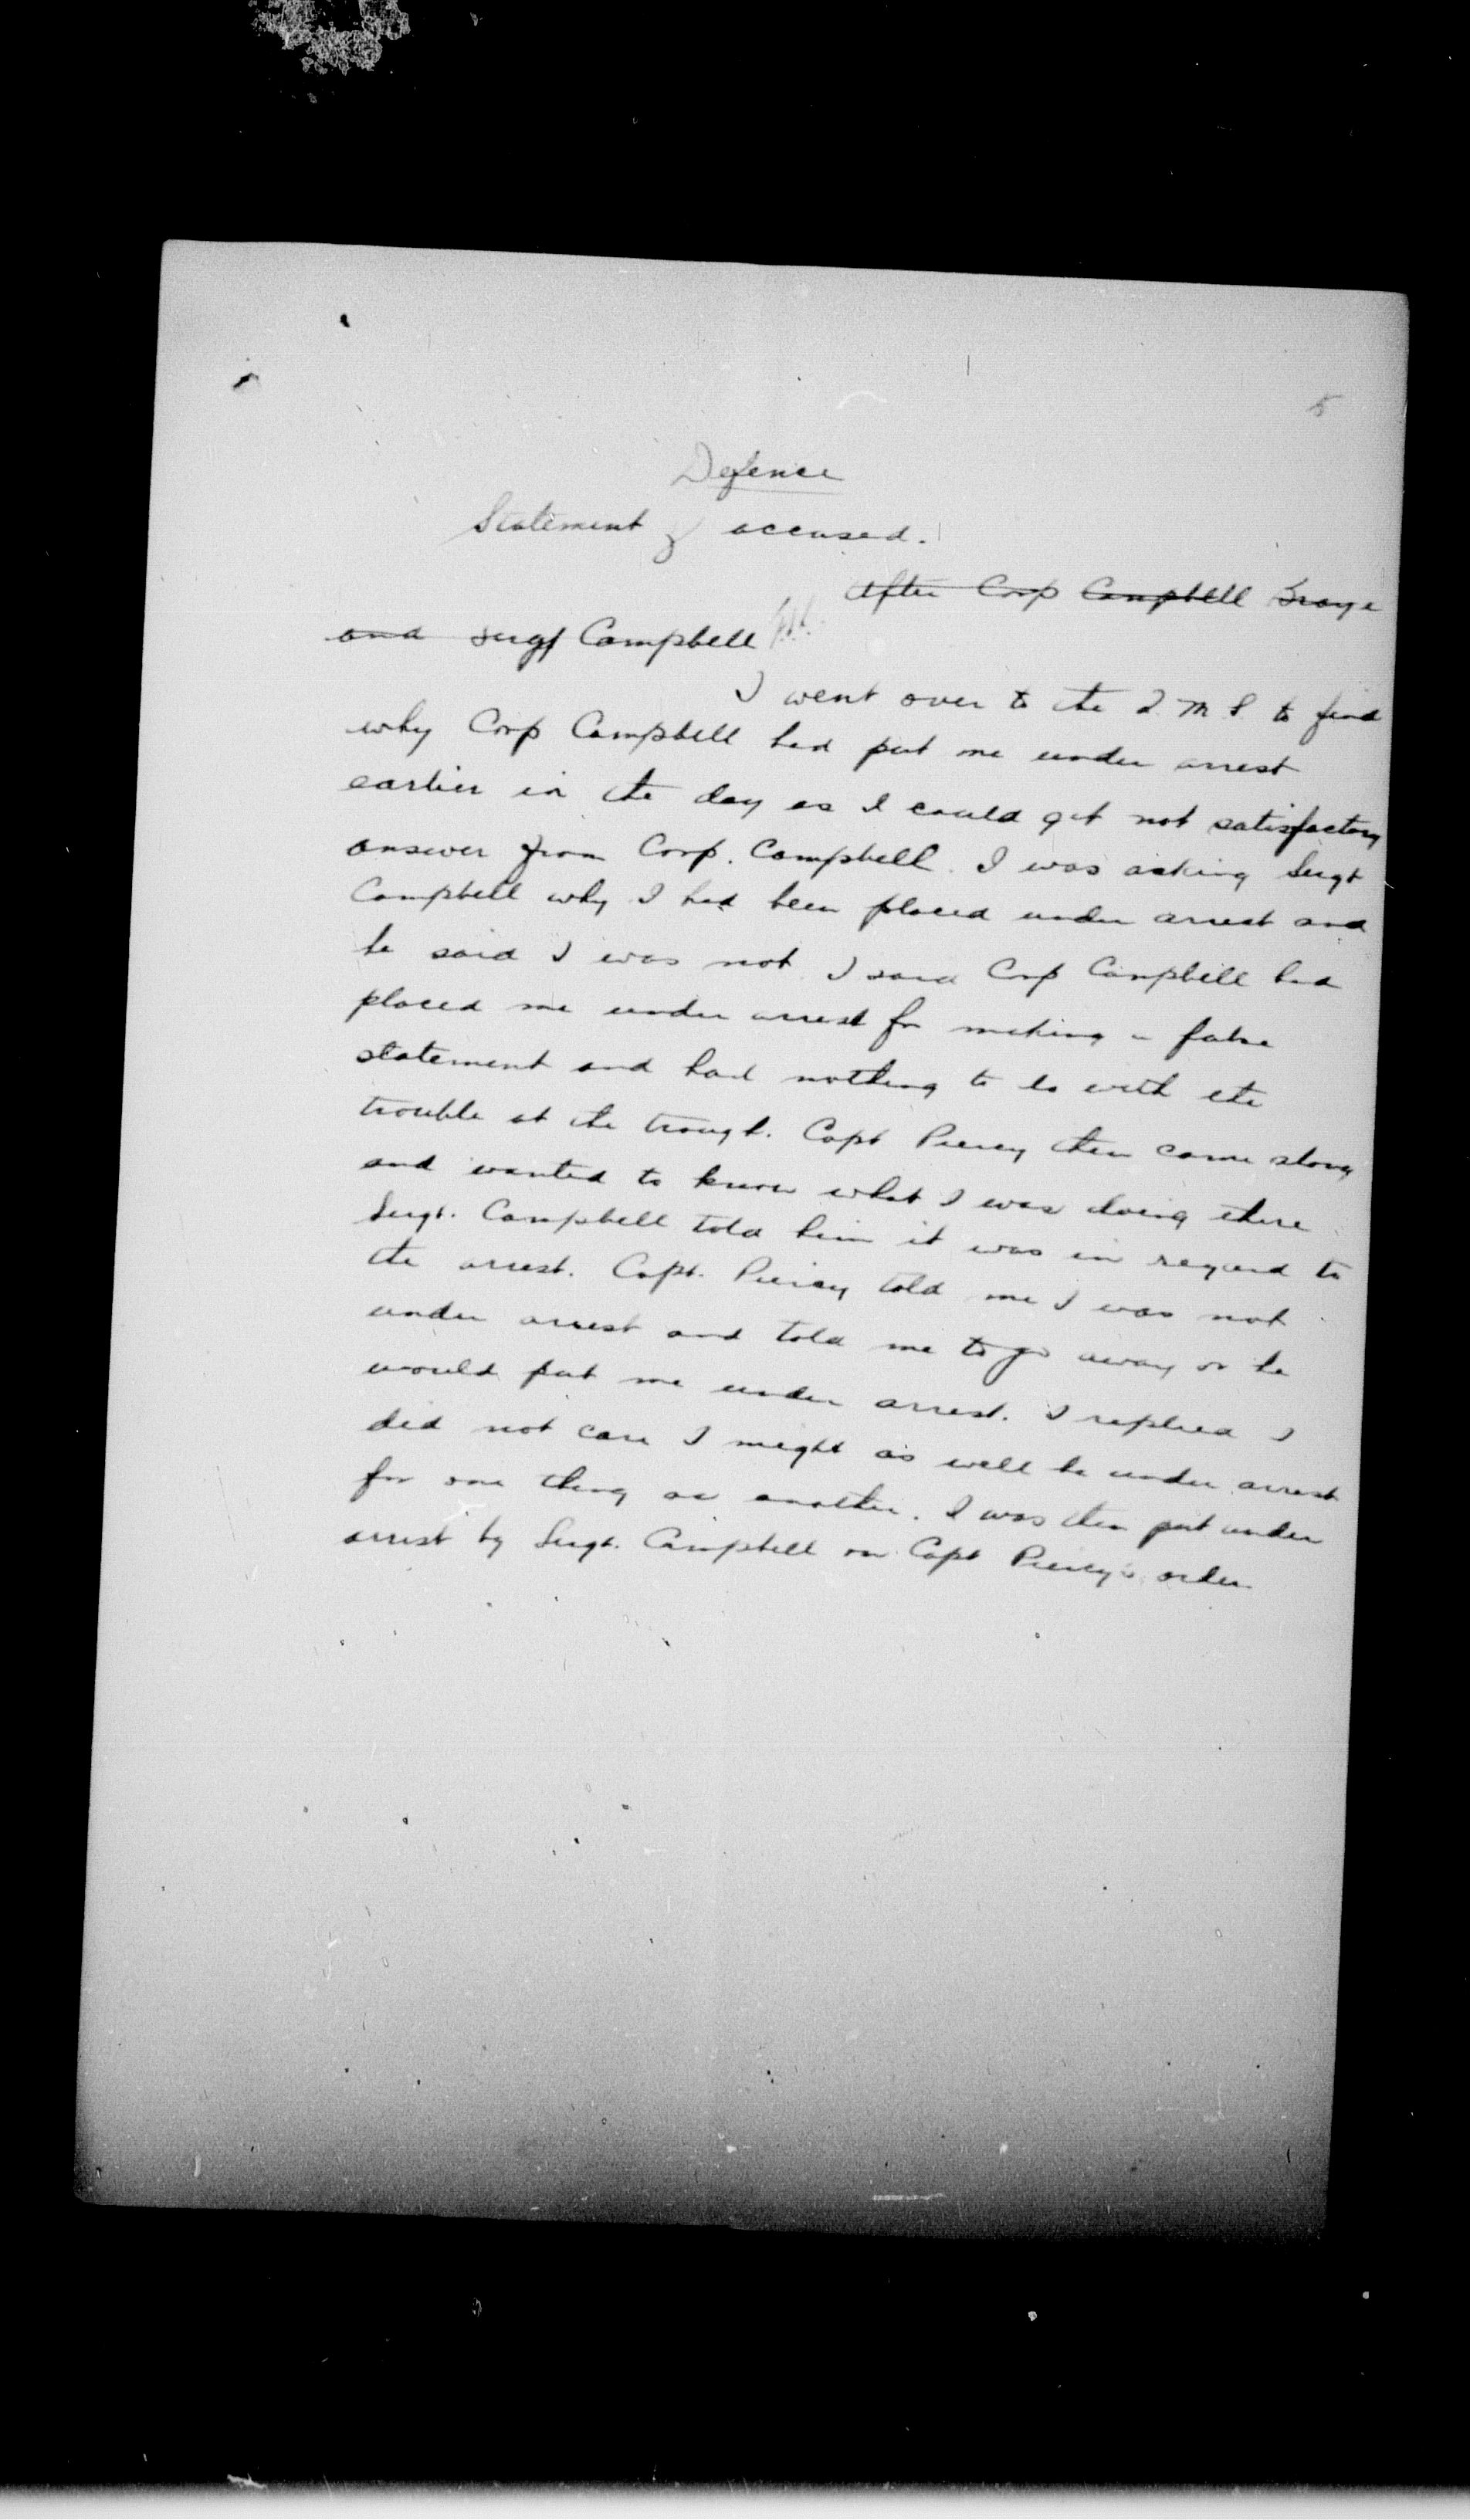 5
Defence
Statement of accused.
After Corp Campbell
and Sergt Campbell
I went over to the Q.M.S to find
why Corp Campbell had put me under arrest
earlier in the day as I could get not satisfactory
answer from Corp. Campbell. I was asking Sergt
Campbell why I had been placed under arrest and
he said I was not. I said Corp Campbell had
placed me under arrest for making a false
statement and had nothing to do with the
trouble at the trough. Capt Piercy then came along
and wanted to know what I was doing there
Sergt. Campbell told him it was in regard to
the arrest. Capt. Piercy told me I was not
under arrest and told me to go away or he
would put me under arrest. I replied I
did not care I might as well be under arrest
for one thing as another. I was then put under
arrest by Sergt. Campbell on Capt Piercy's order